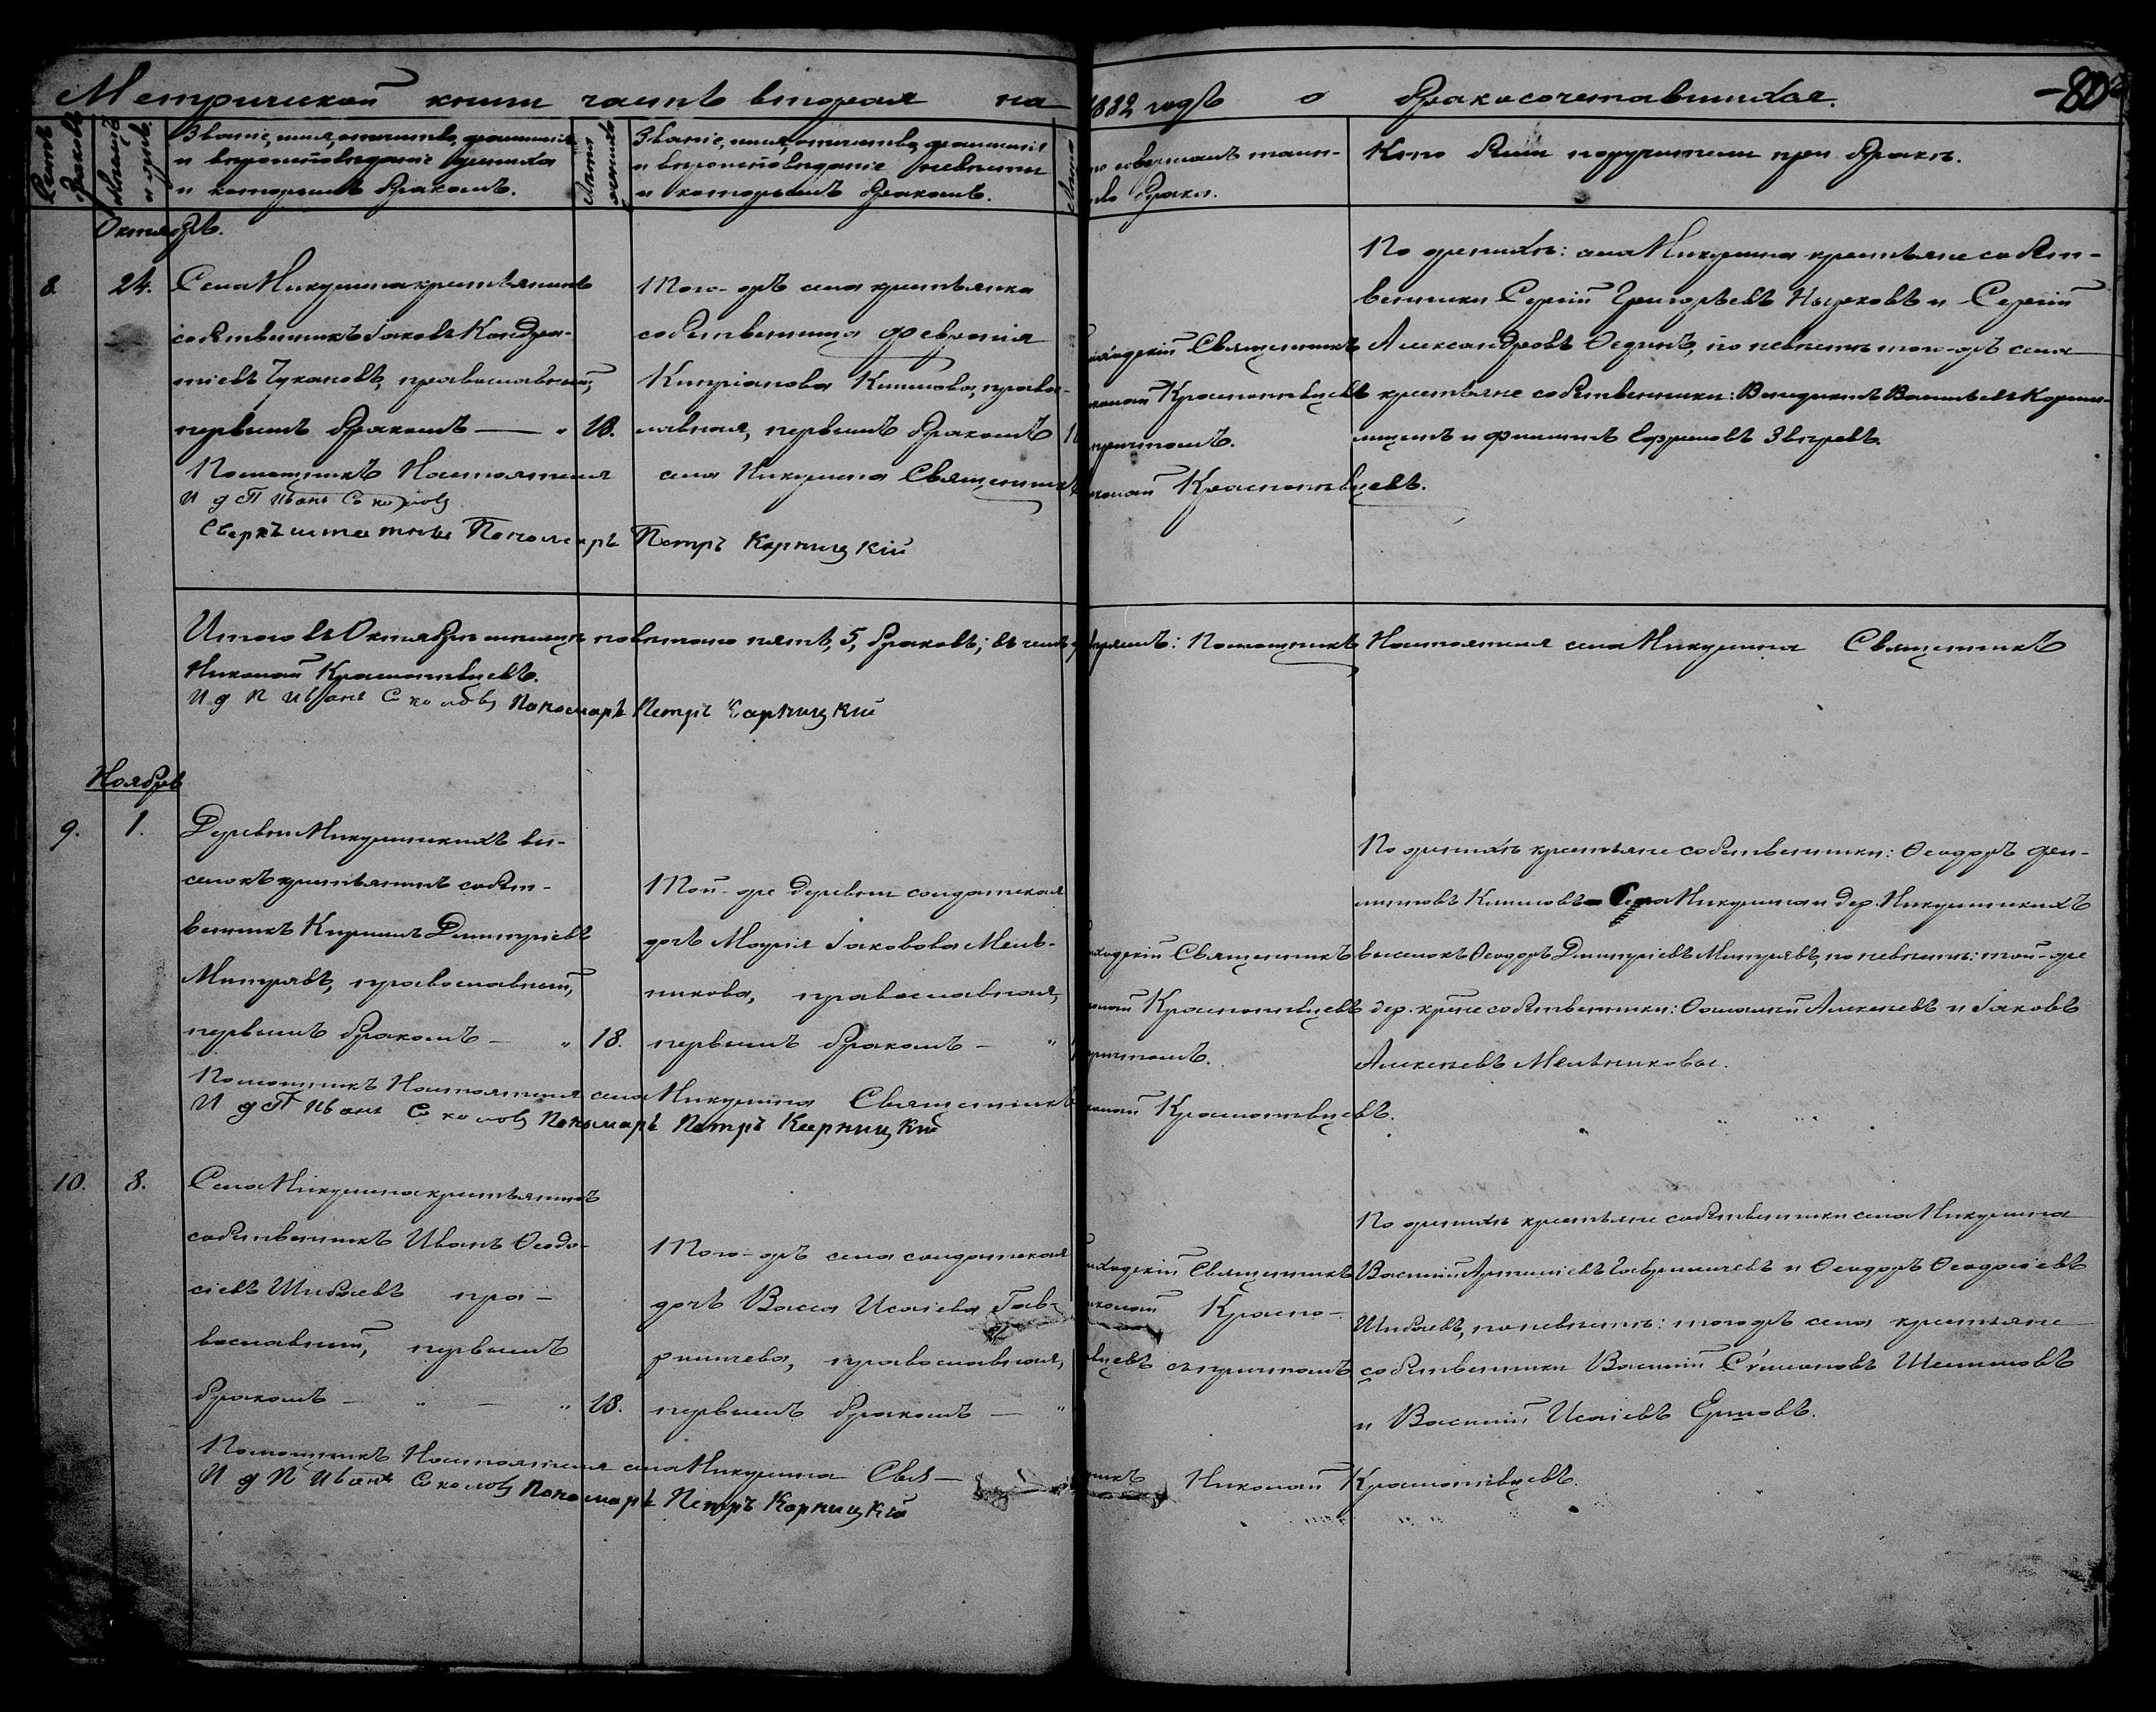 Метрической книги часть вторая на 1882 годъ о бракосочетавшихся. 80
Счетъ браковъ
Мѣсяцъ и день.
Званіе, имя, отчество, фамилія
и вѣроисповѣданіе жениха
и которымъ бракомъ.
Лѣта жениха
Званіе, имя, отчество, фамилія
и вѣроисповѣданіе невѣсты
и которымъ бракомъ.
Лѣта
то совершалъ таин-
во брака.
Кто были поручители при бракѣ.
Октябрь.
8. 24.
Села Микулина крестьянинъ
собственникъ Іаковъ Кондра-
тіевъ Чукановъ, православный,
первымъ бракомъ — " 18.
Того-жъ села крестьянка
собственница Февронія
Кипріанова Климова, право-
лавная, первымъ бракомъ
Священникъ
Краснопѣвцевъ
причтомъ.
По женихѣ: села Микулина крестьяне собст-
венники Сергій Григорьевъ и Сергій
Александровъ по невѣстѣ того-жъ села
крестьяне собственники: Венедиктъ Васильевъ
и Филиппъ Ефремовъ Звѣревъ.
Помощникъ Настоятеля села Микулина Священникъ Краснопѣвцевъ.
И д П Иванъ Соколовъ
Сверхштатный Пономарь Петръ Карницкій
Итого въ Октябрѣ мѣсяцѣ повѣнчано пять, 5, браковъ; въ чемъ Помощникъ Настоятеля села Микулина Священникъ
Николай Краснопѣвцевъ.
И д П Иванъ Соколовъ Пономарь Петръ Карницкій
Ноябрь
9. 1.
Деревни Микулинскихъ вы-
селокъ крестьянинъ собст-
венникъ Кириллъ Димитріевъ
православный,
первымъ бракомъ — " 18.
Той-же деревни солдатская
дочь Марія Іаковова Мель-
никова, православная,
первымъ бракомъ — "
Священникъ
Краснопѣвцевъ
причтомъ.
По женихѣ крестьяне собственники: Ѳеодоръ Фи-
липповъ Климовъ села Микулина и дер. Микулинскихъ
выселокъ Ѳеодоръ Димитріевъ по невѣстѣ: той-же
дер. кр-не собственники: Алексѣевъ и Іаковъ
Алексѣевъ Мельниковы.
Помощникъ Настоятеля села Микулина Священникъ Краснопѣвцевъ.
И д П Иванъ Соколовъ Пономарь Петръ Карницкій
10. 8.
Села Микулина крестьянинъ
собственникъ Иванъ Ѳеодо-
сіевъ Шибаевъ пра-
вославный, первымъ
бракомъ — " — " 18.
Того-жъ села солдатская
дочь Васса Исаіева Гав-
риличева, православная,
первымъ бракомъ — "
Священникъ
Красно-
вцевъ съ причтомъ
По женихѣ крестьяне собственники села Микулина
Василій Гавриличевъ и Ѳеодоръ Ѳеодосіевъ
Шибаевъ, по невѣстѣ: того жъ села крестьяне
собственники Василій Симоновъ
и Василій Исаіевъ
Помощникъ Настоятеля села Микулина Свя- Николай Краснопѣвцевъ.
И д П Иванъ Соколовъ Пономарь Петръ Карницкій